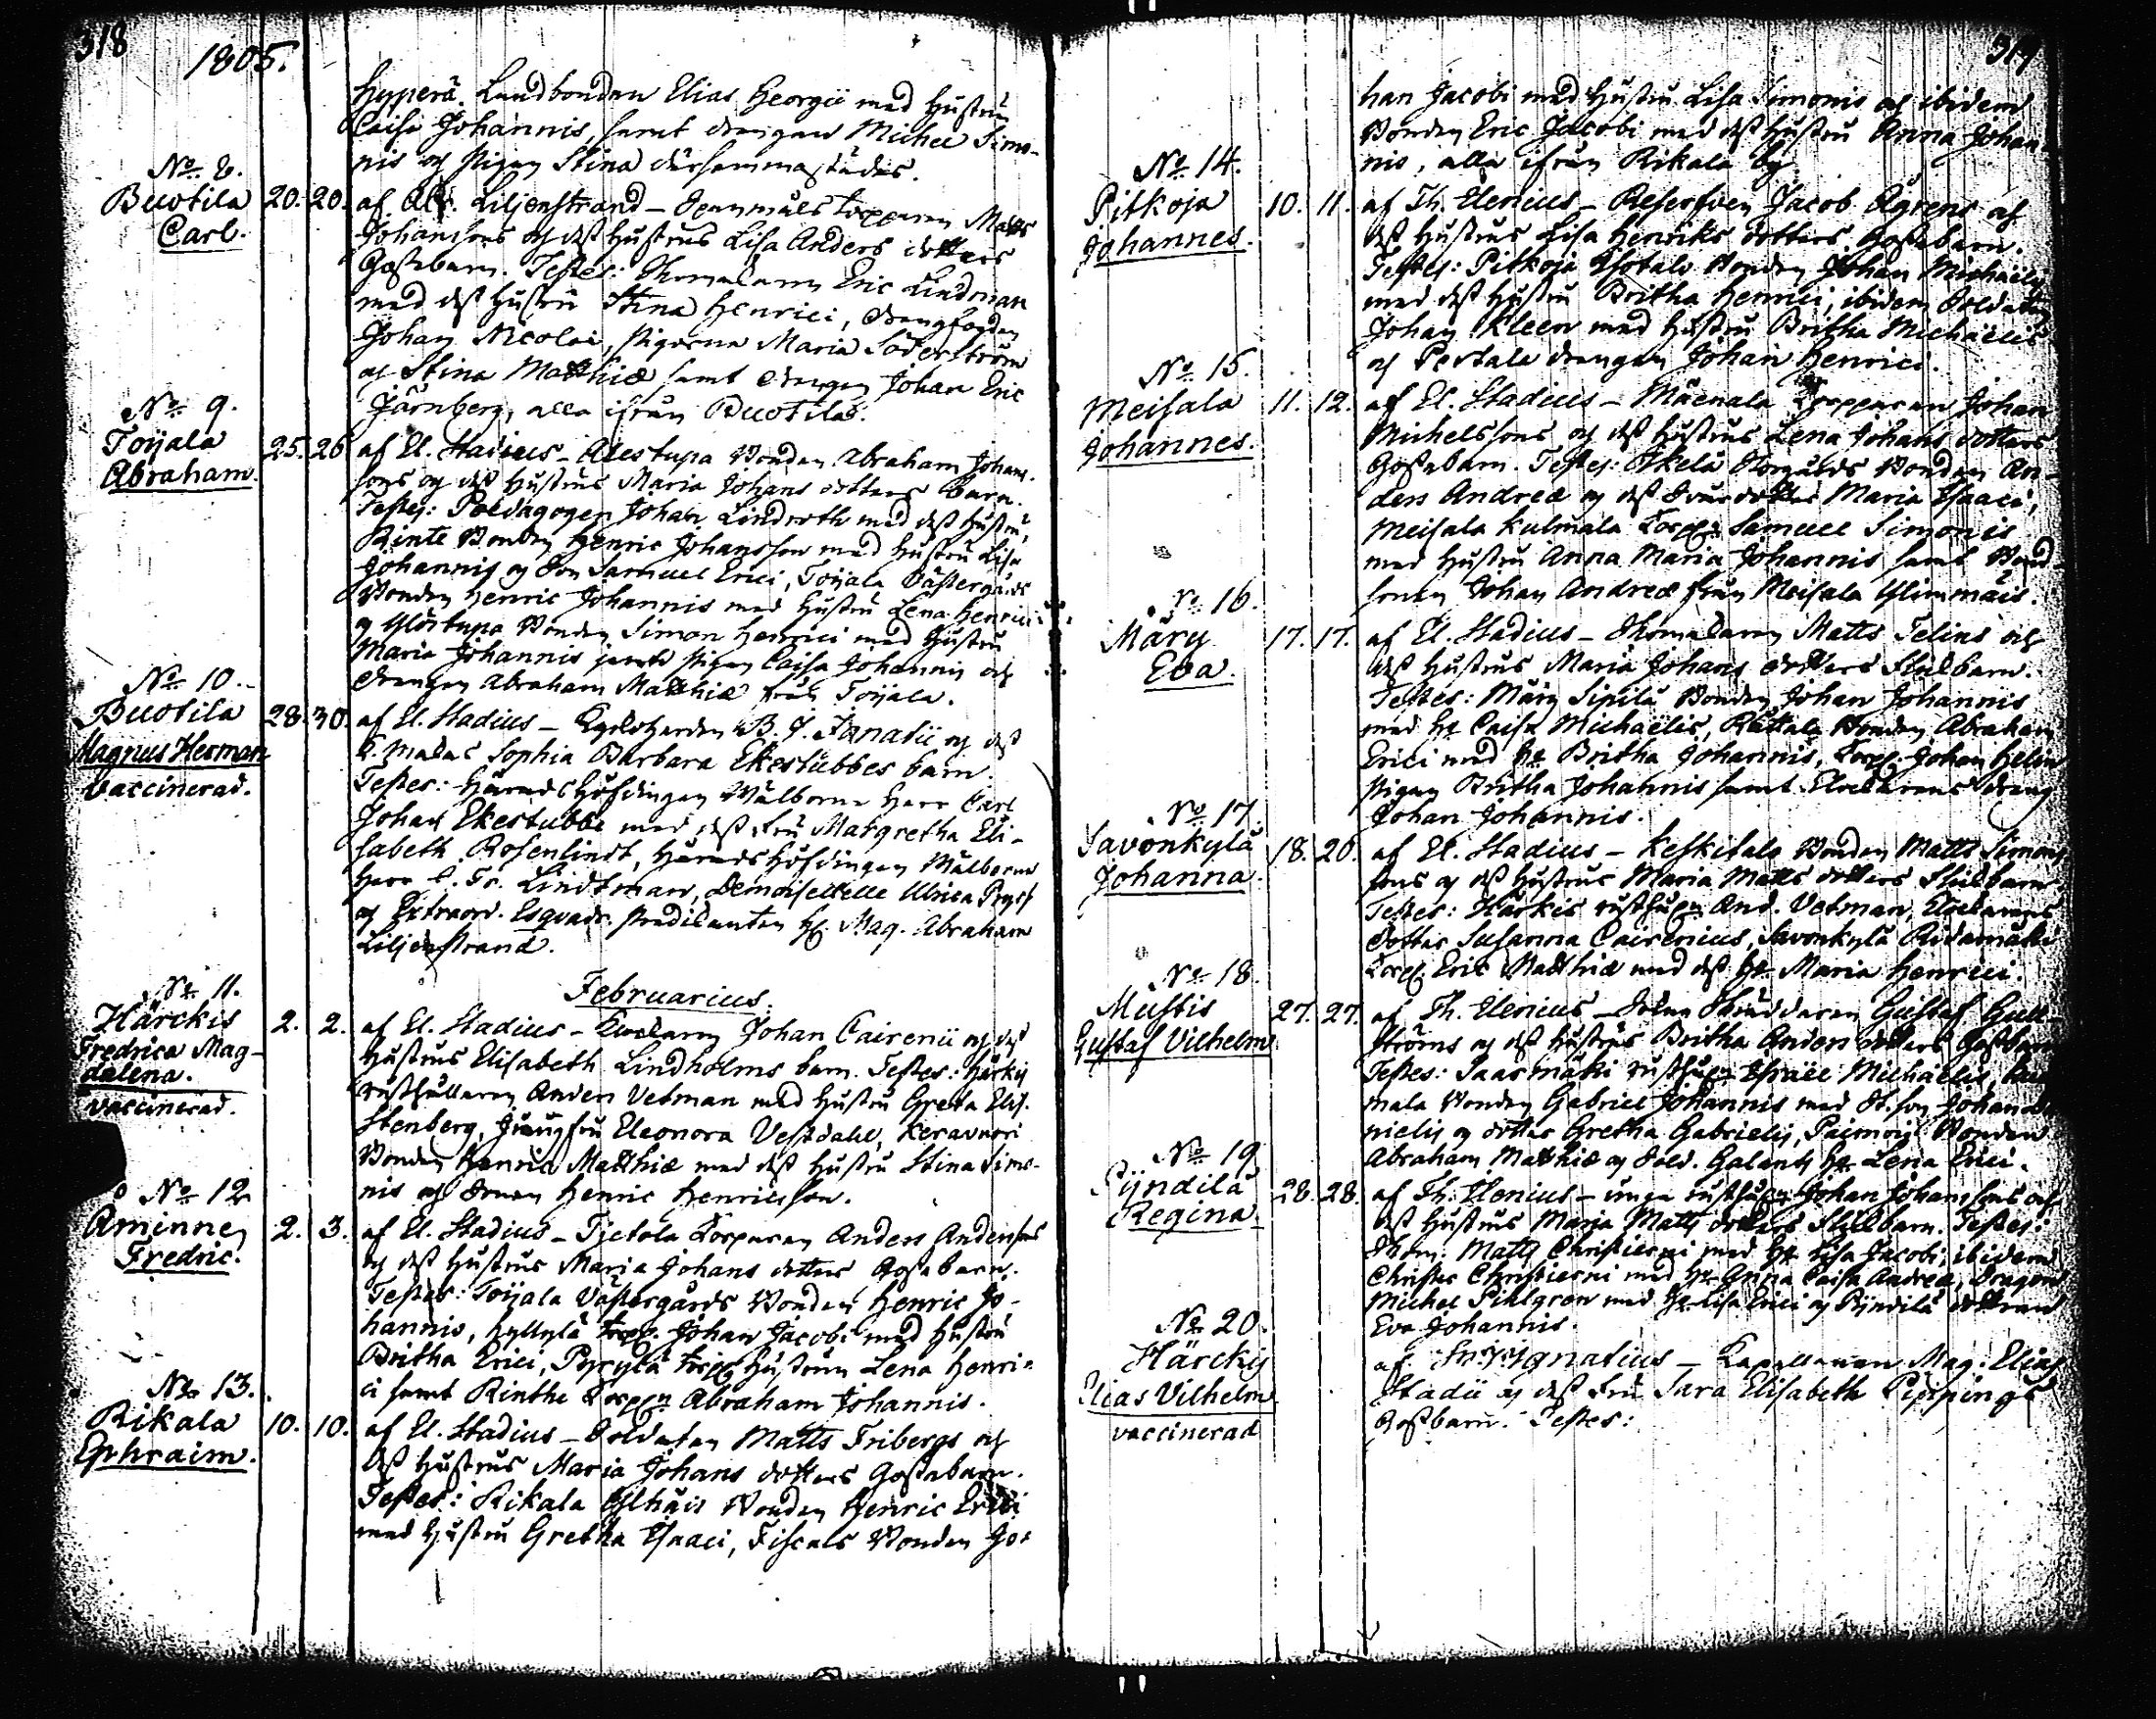 318
1805.
Hyyperä. Landbonden Elias Georgii med Hustru
Caisa Johannis, samt drengen Michel Simo-
nis och pigan Stina därsammastädes.
No. 8.
Buotila 20. 20.
Carl.
af Abr. Liljenstrand - Torparen Matts
Johanssons och dess Hustrus Lisa Anders dotters
Gossebarn. Testes: Eric Lindman
med dess Hustru Stina Henrici, drengfogden
Johan Nicolai, pigorna Maria Söderström
och Stina Matthiæ samt drengen Johan Eric
Järnberg, alla ifrån Buotila.
No. 9.
Toijala 25. 26
Abraham.
af El. Stadius - Alestupa Bonden Abraham Johans-
sons och dess Hustrus Maria Johans dotters barn.
Testes: Pædagogen Johan Lindroth med dess Hustru,
Rinte Bonden Henric Johansson med Hustru Lisa
Johannis och Son Samuel Erici, Toijala Västergårds
Bonden Henric Johannis med Hustru Lena Henrici
och Ylöstupa Bonden Simon Henrici med Hustru
Maria Johannis jemte pigan Caisa Johannis och
drengen Abraham Matthiæ från Toijala.
No. 10.
Buotila 28. 30.
Magnus Herman
vaccinerad.
af El. Stadius - B. J. Ignatii och dess
K. Makas Sophia Barbara Ekestubbes barn.
Testes: Häradshöfdingen Wälborne Herr Carl
Johan Ekestubbe med dess Fru Margretha Eli-
sabeth Rosenlindt, Häradshöfdingen Wälborne
Herr C. Fr. Lindtman, Demoiselle Ulrica
och Extraord. Esquadr. predikanten H. Mag. Abraham
Liljenstrand.
Februarius.
No. 11.
Härckis 2. 2.
Fredrica Mag-
dalena.
vaccinerad.
af El. Stadius - Johan Cairenii och dess
Hustrus Elisabeth Lindholms barn. Testes: Härkis
rusthållaren Anders Vetman med Hustru Greta Elis.
Stenberg, Jungfru Eleonora Vestdahl, Keravuori
Bonden Henric Matthiæ med dess Hustru Stina Simo-
nis och Henric Henricsson.
No. 12
Aminne 2. 3.
Fredric.
af El. Stadius - Tjetola Torparen Anders Anderssons
och dess Hustrus Maria Johans dotters Gossebarn.
Testes: Toijala Västergårds Bonden Henric Jo-
hannis, Kyllylä Torp. Johan Jacobi med Hustru
Britha Erici, Pyrylä Torp. Hustrun Lena Henri-
ci samt Rinthe Torp. Abraham Johannis.
No. 13.
Rikala 10. 10.
Ephraim.
af El. Stadius - Soldaten Matts Fribergs och
dess Hustrus Maria Johans dotters Gossebarn.
Testes: Rikala Ylhäis Bonden Henric Erici
med Hustru Gretha Isaaci, Fiscals Bonden Jo-
319
han Jacobi med Hustru Lisa Simonis och ibidem
Bonden Eric Jacobi med dess Hustru Anna Johan-
nis, alla ifrån Rikala by
No. 14.
Pitkoja 10. 11.
Johannes.
af Th. Elenius - Reserfven Jacob Ågrens och
dess Hustrus Lisa Henriks dotters Gossebarn.
Testes: Pitkoja Ylotalo Bonden Johan Michaelis
med dess Hustru Britha Henrici, ibidem Soldaten
Johan Kleen med Hustru Britha Michaelis
och Pertala drengen Johan Henrici.
No. 15.
Meisala 11. 12.
Johannes.
af El. Stadius - Mäenala Torparen Johan
Michelssons och dess Hustrus Lena Johans dotters
Gossebarn. Testes: Åkelä Norgårds Bonden An-
ders Andreæ och dess Maria Isaaci,
Meisala Kulmala Torp. Samuel Simonis
med Hustru Anna Maria Johannis samt Bond-
sonen Johan Andreæ från Meisala Ylimmäis.
No. 16.
Märy 17. 17.
Eva.
af El. Stadius - Skomakaren Matts Telins och
dess Hustrus Maria Johans dotters Flickbarn.
Testes: Märy Sipilä Bonden Johan Johannis
med H. Caisa Michaelis, Rattala Bonden Abraham
Erici med H. Britha Johannis, Torp. Johan Helin
pigan Britha Johannis samt dreng
Johan Johannis.
No. 17.
Savonkylä 18. 20.
Johanna.
af El. Stadius - Keskitalo Bonden Matts Simons
sons och dess Hustrus Maria Matts dotters Flickbarn.
Testes: Härkis rusth. And. Vetman,
dotter Susanna Cairenius, Savonkylä
Torp. Eric Matthiæ med dess H. Maria Henrici.
No. 18.
Mustis 27. 27.
Gustaf Vilhelm
af Th. Elenius - Skräddaren Gustaf Gull-
ströms och dess Hustrus Britha Anders dotters Gossbarn
Testes: Saarmäki rusth. Israel Michaelis,
mala Bonden Gabriel Johannis med Johan
nielis och dotter Gretha Gabrielis, Paimoij Bonden
Abraham Matthiæ och Sold. Galants H. Lena Erici.
No. 19
Pyndilä 28. 28.
Regina.
af Th. Elenius - unga rusth. Johan Johanssons och
dess Hustrus Maria Matts dotters Flickbarn. Testes:
Matts Christierni med H. Lisa Jacobi, ibidem
Christer Christierni med H. Anna Caisa Andreæ, Dragon
Michel Pihlgren med H. Lisa Erici och Pyndilä dottren
Eva Johannis.
No. 20
Härckis
Elias Vilhelm
vaccinerad
af Ignatius - Kapellanen Mag: Elias
Stadii och dess Fru Sara Elisabeth Pippings
Gossbarn. Testes: